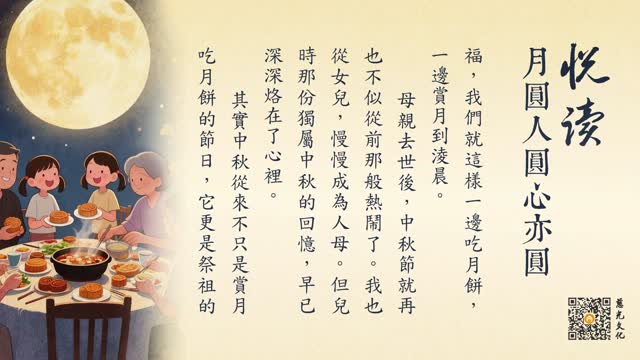 悦读
月圓人圓心亦圓
福，我們就這樣一邊吃月餅，
一邊賞月到淩晨。
母親去世後，中秋節就再
也不似從前那般熱鬧了。我也
從女兒，慢慢成為人母。但兒
時那份獨屬中秋的回憶，早已
深深烙在了心裡。
其實中秋從來不只是賞月
吃月餅的節日，它更是祭祖的
慈光文化